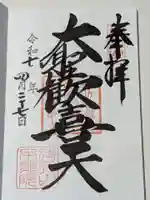 奉拝
大聖歓喜天
令和七年
四月二十七日